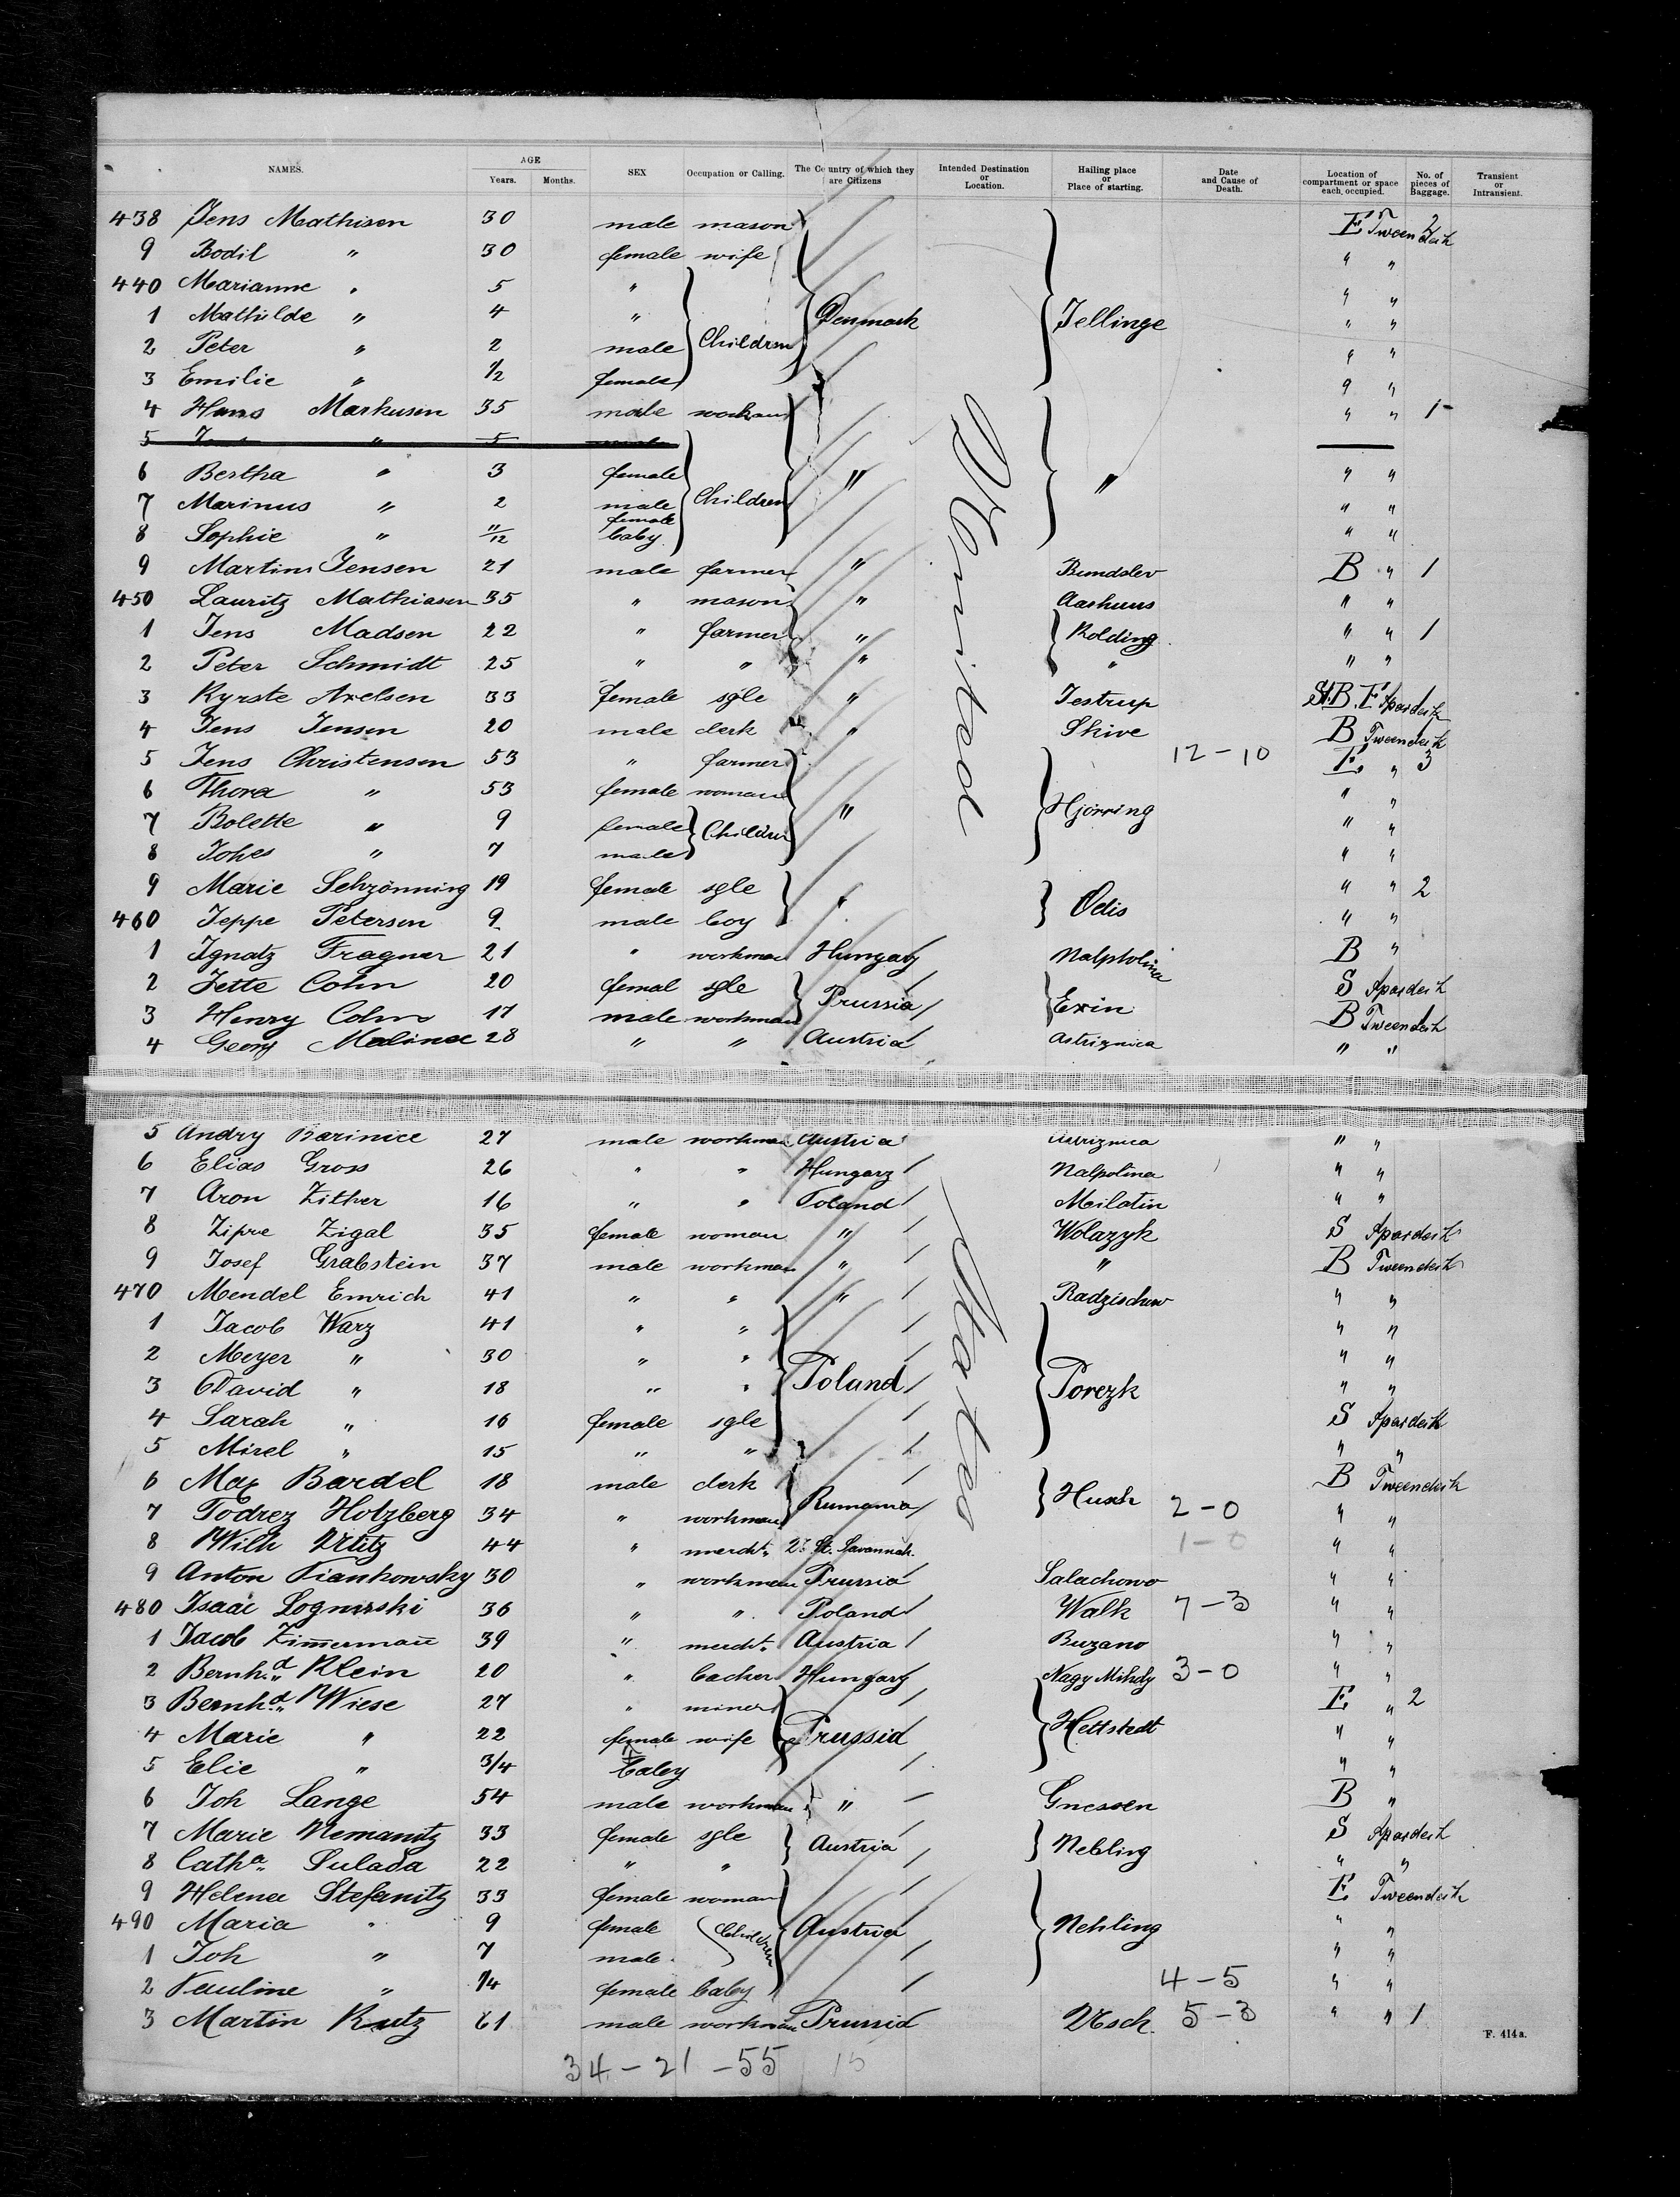 NAMES. AGE Years. Months. SEX Occupation or Calling. The Country of which they are Citizens Intended Destination or Location. Hailing place or Place of starting. Date and Cause of Death. Location of compartment or space each occupied. No. of pieces of Baggage. Transient or Intransient.
438 Jens Mathisen 30 male mason E Tweendeck 2
9 Bodil " 30 female wife " "
440 Marianne " 5 " " "
1 Mathilde " 4 " Children Denmark Jellinge " "
2 Peter " 2 male " "
3 Emilie " 1/2 female " "
4 Hans Markusen 35 male workman " " 1
5 " 5 male
6 Bertha " 3 female " " " "
7 Marinus " 2 male Children " "
8 Sophie " 11/12 female baby " "
9 Martin Jensen 21 male farmer " Bundslev B " 1
450 Lauritz Mathiasen 35 " mason " Aarhuus " "
1 Jens Madsen 22 " farmer " Kolding " " 1
2 Peter Schmidt 25 " " " " " "
3 Kyrste Axelsen 33 female sgle " Jestrup St.B.E Spardeck 1
4 Jens Jensen 20 male clerk " Skive B Tweendeck 1
5 Jens Christensen 53 " farmer 12-10 E " 3
6 Thora " 53 female woman " Hjörring " "
7 Bolette " 9 female Children " "
8 Johes " 7 male " "
9 Marie Schzönning 19 female sgle " Odis " " 2
460 Jeppe Petersen 9 male boy " "
1 Ignatz Fragner 21 " workman Hungary Nalpholina B "
2 Jette Cohn 20 femal sgle Prussia Exin S Spardeck
3 Henry Cohn 17 male workman B Tweendeck 1
4 Georg Malina 28 " " Austria Astriznica " "
5 Andry Barinice 27 male workman Austria Astriznica " "
6 Elias Gross 26 " " Hungary Nalpolina " "
7 Aron Zither 16 " " Poland Meilatin " "
8 Zipre Zigal 35 female woman " Wolazyk S Spardeck
9 Josef Grabstein 37 male workman " " B Tweendeck
470 Mendel Emrich 41 " " " Radzischow " "
1 Jacob Warz 41 " " " "
2 Meyer " 30 " " Poland Porezk " "
3 David " 18 " " " "
4 Sarah " 16 female sgle S Spardeck
5 Mirel " 15 " " " "
6 Max Bardel 18 male clerk Rumania Husch B Tweendeck
7 Todrez Holzberg 34 " workman 2-0 " "
8 Wilh 44 " mercht. St. Savannah. 1-0 " "
9 Anton Tiankowsky 30 " workman Prussia Salachowo " "
480 Isaac Lognirski 36 " " Poland Walk 7-3 " "
1 Jacob Zimmermann 39 " mercht. Austria Buzano " "
2 Bernhd. Klein 20 " backer Hungary Nagy Mihdy 3-0 " "
3 Bernhd. Wiese 27 " miner Prussia Hettstedt E " 2
4 Marie " 22 female wife " "
5 Elie " 3/4 baby " "
6 Joh Lange 54 male workman " Gnesen B "
7 Marie Nemanitz 33 female sgle Austria Nebling S Spardeck
8 Catha. Sulada 22 " " " "
9 Helena Stefanitz 33 female woman Austria Nehling E Tweendeck
490 Maria " 9 female Children " "
1 Joh " 7 male " "
2 Pauline " 1/4 female baby 4-5 " "
3 Martin Kutz 61 male workman Prussia Usch 5-3 " " 1
34-21-55 15
F. 414a.
United States